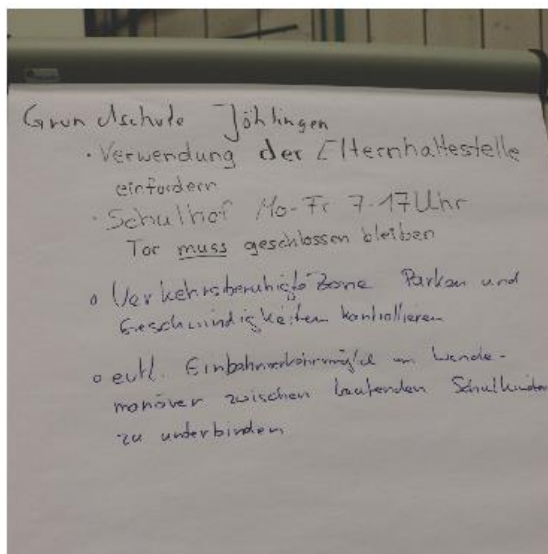 Grundschule Jöhlingen
· Verwendung der Elternhaltestelle
einfordern
· Schulhof Mo-Fr 7-17Uhr
Tor muss geschlossen bleiben
o Verkehrsberuhigte Zone Parken und
Geschwindigkeiten kontrollieren
o evtl. Einbahnverkehr um Wende-
manöver zwischen laufenden Schulkinder
zu unterbinden